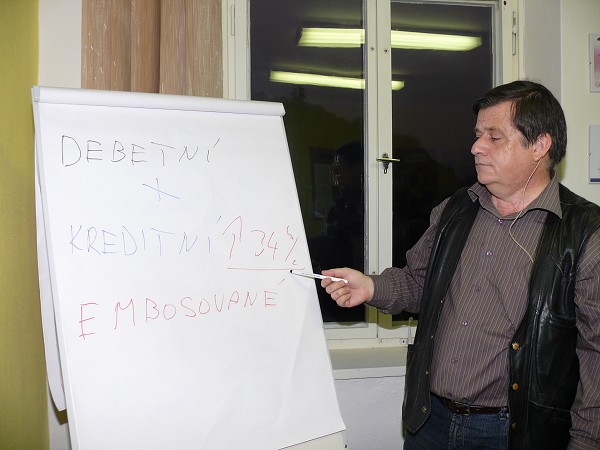 DEBETNÍ
+
KREDITNÍ ↑ 34%
EMBOSOVANÉ